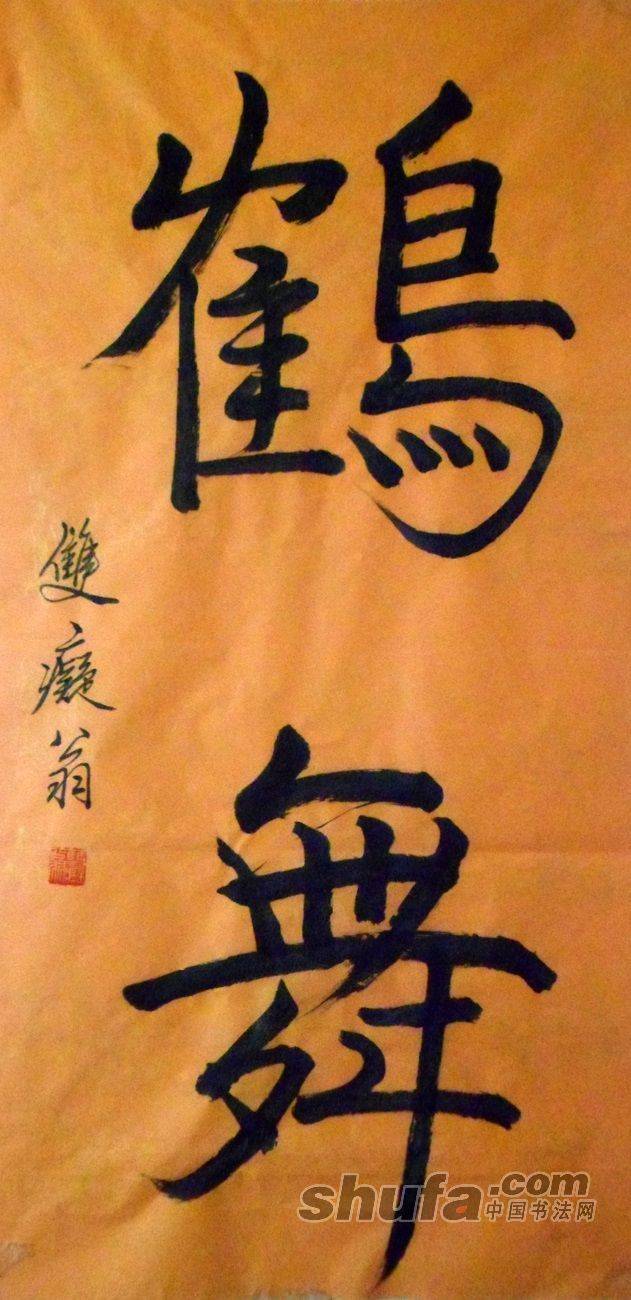 鶴舞
雙癡翁
shufa.com
中国书法网